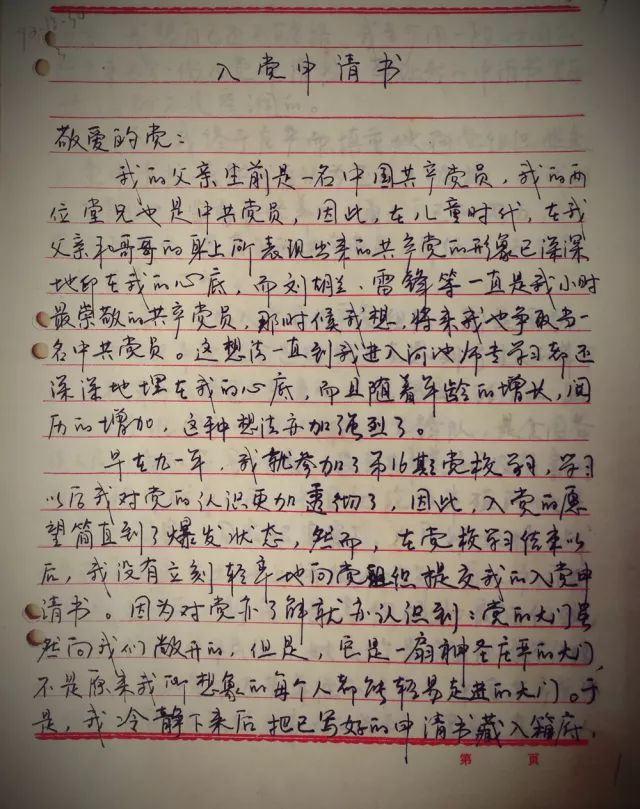 入党申请书
敬爱的党：
我的父亲生前是一名中国共产党员，我的两
位堂兄也是中共党员，因此，在儿童时代，在我
父亲和哥哥的身上所表现出来的共产党的形象已深深
地印在我的心底，而刘胡兰、雷锋等一直是我小时
最崇敬的共产党员，那时候我想，将来我也争取当一
名中共党员。这想法一直到我进入河池师专学习都还
深深地埋在我的心底，而且随着年龄的增长，阅
历的增加，这种想法亦加强烈了。
早在九一年，我就参加了第16期党校学习，学习
以后我对党的认识更加透彻了，因此，入党的愿
望简直到了爆发状态，然而，在党校学习结束以
后，我没有立刻轻率地向党组织提交我的入党申
请书。因为对党亦了解就亦认识到：党的大门虽
然向我们敞开的，但是，它是一扇神圣庄严的大门，
不是原来我所想象的每个人都能轻易走进的大门。于
是，我冷静下来后把已写好的申请书藏入箱府，
第 页